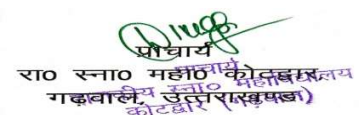 प्राचार्य
रा० स्ना० महा० कोटद्वार,
गढ़वाल, उत्तराखण्ड
प्राचार्य
स्ना० महाविद्यालय
कोटद्वार (गढ़वाल)